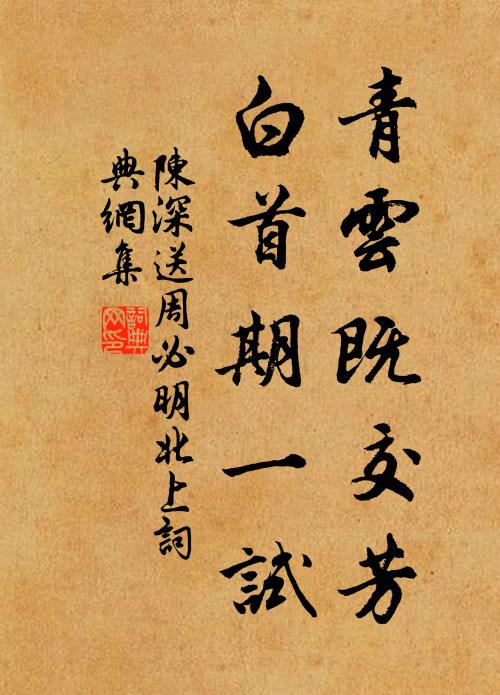 青雲既交芳
白首期一試
陳深送周必明北上詞
典網集
詞典網印